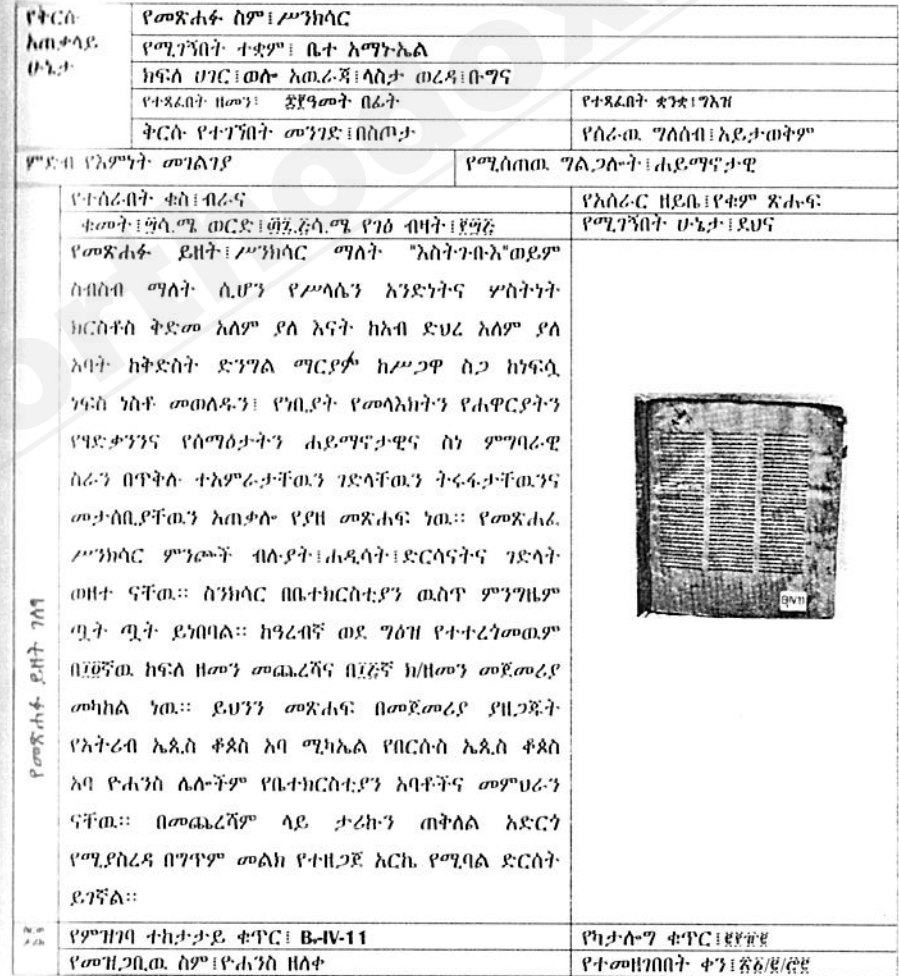 የቅርሱ አጠቃላይ ሁኔታ
የመጽሐፉ ስም፤ሥንክሳር
የሚገኝበት ተቋም፤ ቤተ አማኑኤል
ክፍለ ሀገር፤ወሎ አዉራጃ፤ላስታ ወረዳ፤ቡግና
የተጻፈበት ዘመን፤ ዓመት በፊት የተጻፈበት ቋንቋ፤ግእዝ
ቅርሱ የተገኘበት መንገድ፤በስጦታ የሰራዉ ግለሰብ፤አይታወቅም
ምድብ የእምነት መገልገያ የሚሰጠዉ ግልጋሎት፤ሐይማኖታዊ
የተሰራበት ቁስ፤ብራና የአሰራር ዘይቤ፤የቁም ጽሑፍ
ቁመት፤ ወርድ፤ የገፅ ብዛት፤ የሚገኝበት ሁኔታ፤ደህና
የመጽሐፉ ይዘት፤ሥንክሳር ማለት "እስትጉቡእ"ወይም
ስብስብ ማለት ሲሆን የሥላሴን አንድነትና ሦስትነት
ክርስቶስ ቅድመ አለም ያለ እናት ከአብ ድህረ አለም ያለ
አባት ከቅድስት ድንግል ማርያም ከሥጋዋ ስጋ ከነፍሷ
ነፍስ ነስቶ መወለዱን፤ የነቢያት የመላእክትን የሐዋርያትን
የፃድቃንንና የሰማዕታትን ሐይማኖታዊና ስነ ምግባራዊ
ስራን በጥቅሉ ተአምራታቸዉን ገድላቸዉን ትሩፋታቸዉንና
መታሰቢያቸዉን አጠቃሎ የያዘ መጽሐፍ ነዉ። የመጽሐፈ
ሥንክሳር ምንጮች ብሉያት፤ሐዲሳት፤ድርሳናትና ገድላት
ወዘተ ናቸዉ። ስንክሳር በቤተክርስቲያን ዉስጥ ምንግዜም
ጧት ጧት ይነበባል። ከዓረብኛ ወደ ግዕዝ የተተረጎመዉም
በ፲፬ኛዉ ክፍለ ዘመን መጨረሻና በ፲፭ኛ ክ/ዘመን መጀመሪያ
መካከል ነዉ። ይህንን መጽሐፍ በመጀመሪያ ያዘጋጁት
የአትሪብ ኤጲስ ቆጶስ አባ ሚካኤል የበርሱስ ኤጲስ ቆጶስ
አባ ዮሐንስ ሌሎችም የቤተክርስቲያን አባቶችና መምህራን
ናቸዉ። በመጨረሻም ላይ ታሪኩን ጠቅለል አድርጎ
የሚያስረዳ በግጥም መልክ የተዘጋጀ አርኬ የሚባል ድርሰት
ይገኛል።
የመጽሐፉ ይዘት ገለፃ
የምዝገባ ተከታታይ ቁጥር፤ B-IV-11 የካታሎግ ቁጥር፤
የመዝጋቢዉ ስም፤ዮሐንስ ዘለቀ የተመዘገበበት ቀን፤
BIV11
orthodox